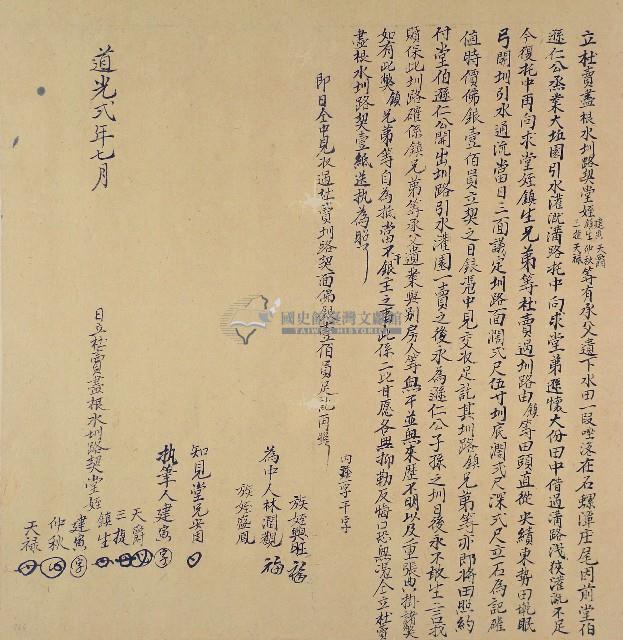 立杜賣盡根水圳路契堂姪建寅鎮生三復天爵仲秋天祿等有承父遺下水田一段坐落在石螺潭庄尾因前堂伯
遜仁公承業大坵園引水灌溉溝路托中向求堂弟遜懷大份田中借過溝路淺狹灌溉不足
今復托中再向求堂姪鎮生兄弟等杜賣過圳路由鎮等田頭直從尖績東勢田
弓開圳引水通流當日三面議定圳路面濶弍尺伍寸圳底濶弍尺深弍尺立石為記
值時價佛銀壹佰員立契之日銀憑中見交收足訖其圳路鎮兄弟等亦即將田照約
付堂伯遜仁公開出圳路引水灌園一賣之後永為遜仁公子孫之圳日後永不敢生言找
贖保此圳路確係鎮兄弟等承父遺業與別房人等無干並無來歷不明以及重張典掛諸獘
如有此獘鎮兄弟等自為抵當不干銀主之事此係二比甘愿各無抑勒反悔口恐無憑仝立杜賣
盡根水圳路契壹紙送執為照
即日仝中見收過杜賣圳路契面佛銀壹佰員足訖再照
內
字
道光弍年七月
族姪興旺
為中人林潤觀
族姪盛鳳
知見堂兄安周
執筆人建寅 字
日立杜賣盡根水圳路契堂姪
天爵
三復
鎮生
建寅 字
仲秋
天祿
國史館臺灣文獻館
TAIWAN HISTORICA